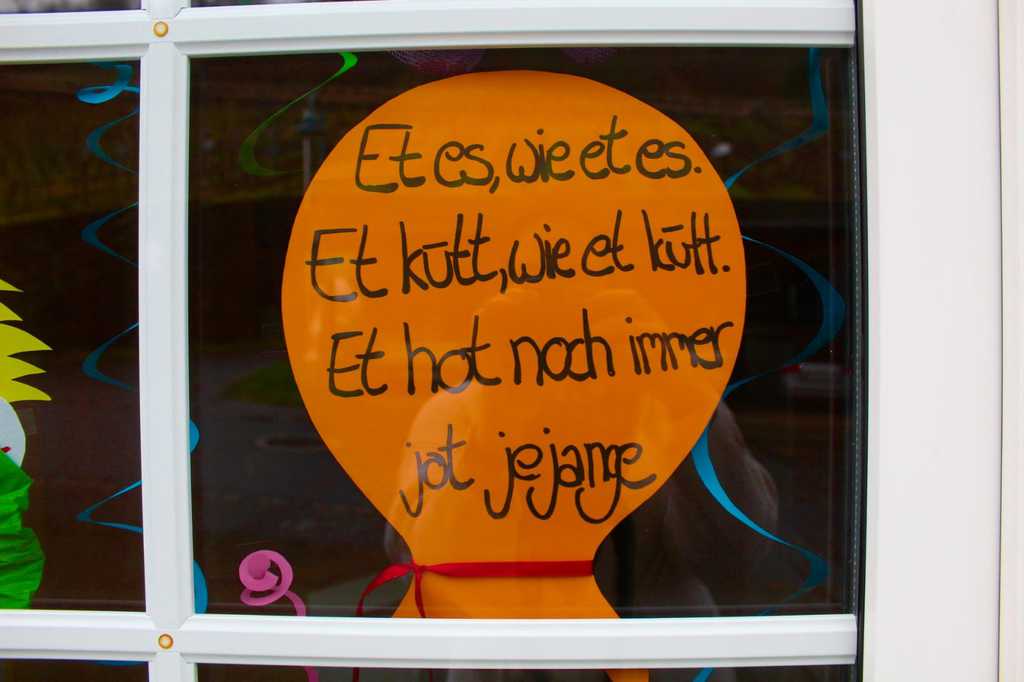 Et es, wie et es.
Et kütt, wie et kütt.
Et hot noch immer
jot jejange